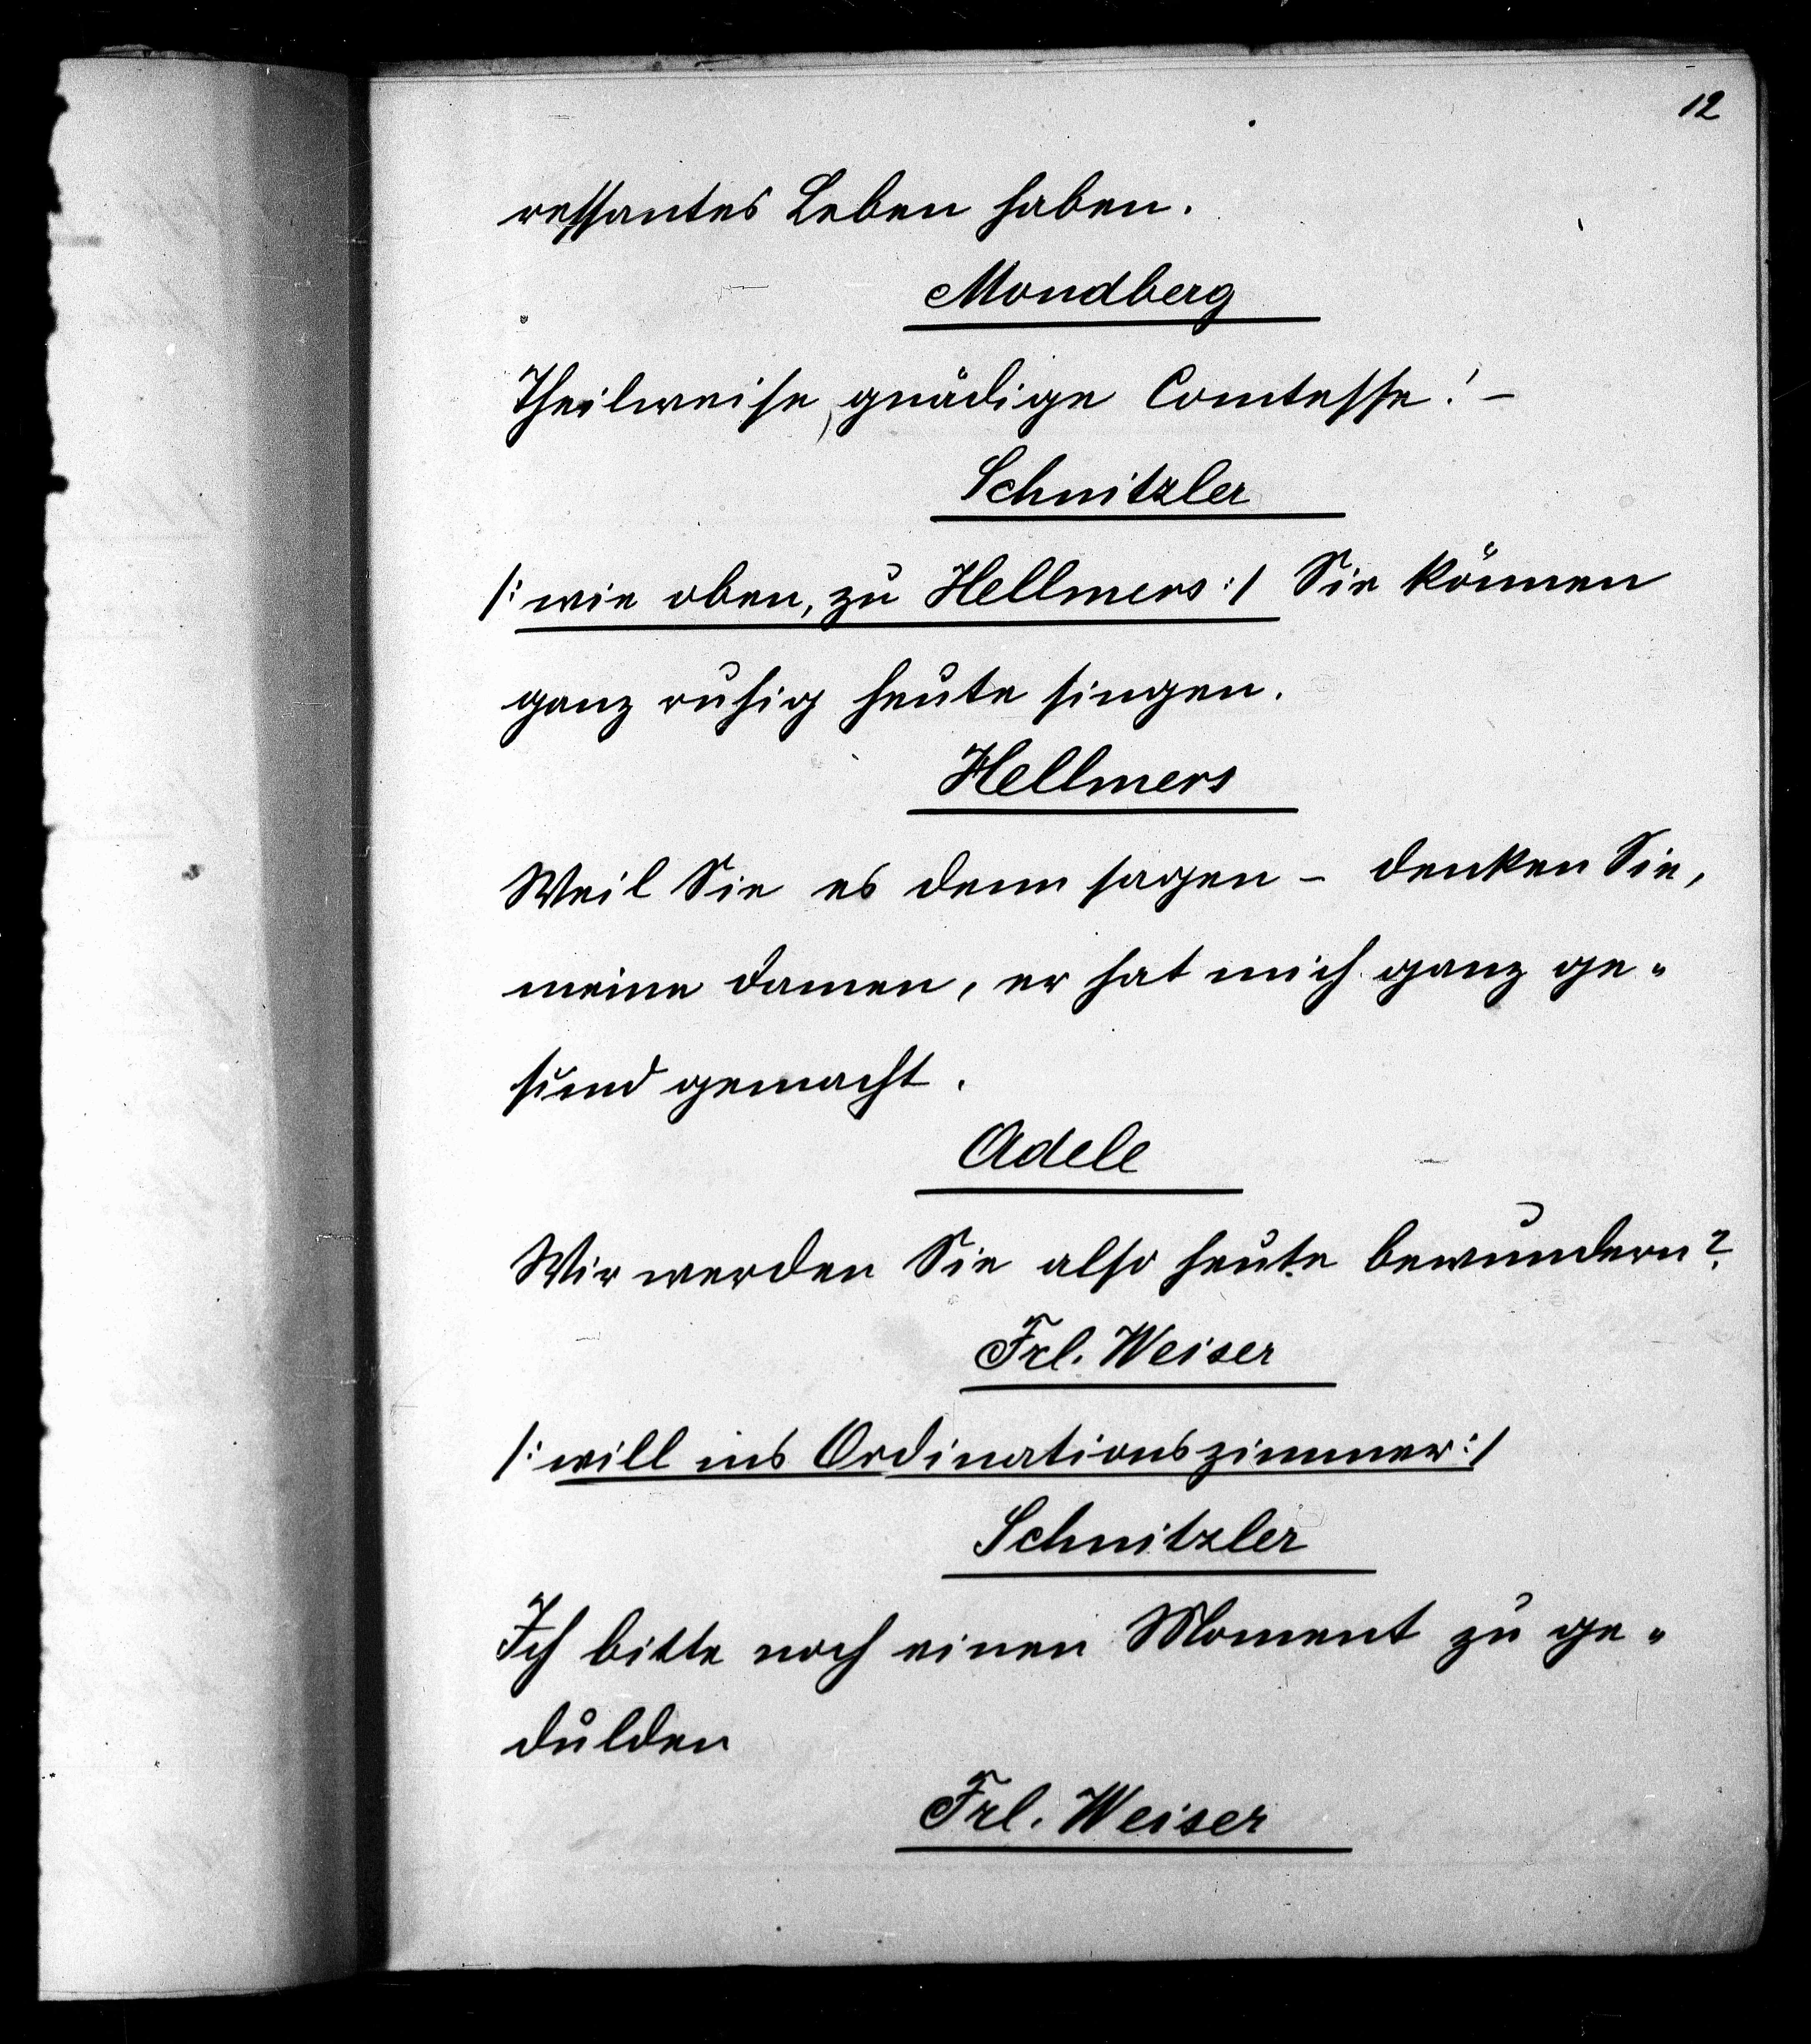 12
ressantes Leben haben.
Mondberg
Theilweise, gnädige Comtesse! –
Schnitzler
/: wie oben, zu Hellmers :/ Sie können
ganz ruhig heute singen.
Hellmers
Weil Sie es denn sagen – denken Sie,
meine Damen, er hat mich ganz ge-
sund gemacht.
Adele
Wir werden Sie also heute bewundern?
Frl. Weiser
/: will ins Ordinationszimmer :/
Schnitzler
Ich bitte noch einen Moment zu ge-
dulden
Frl. Weiser